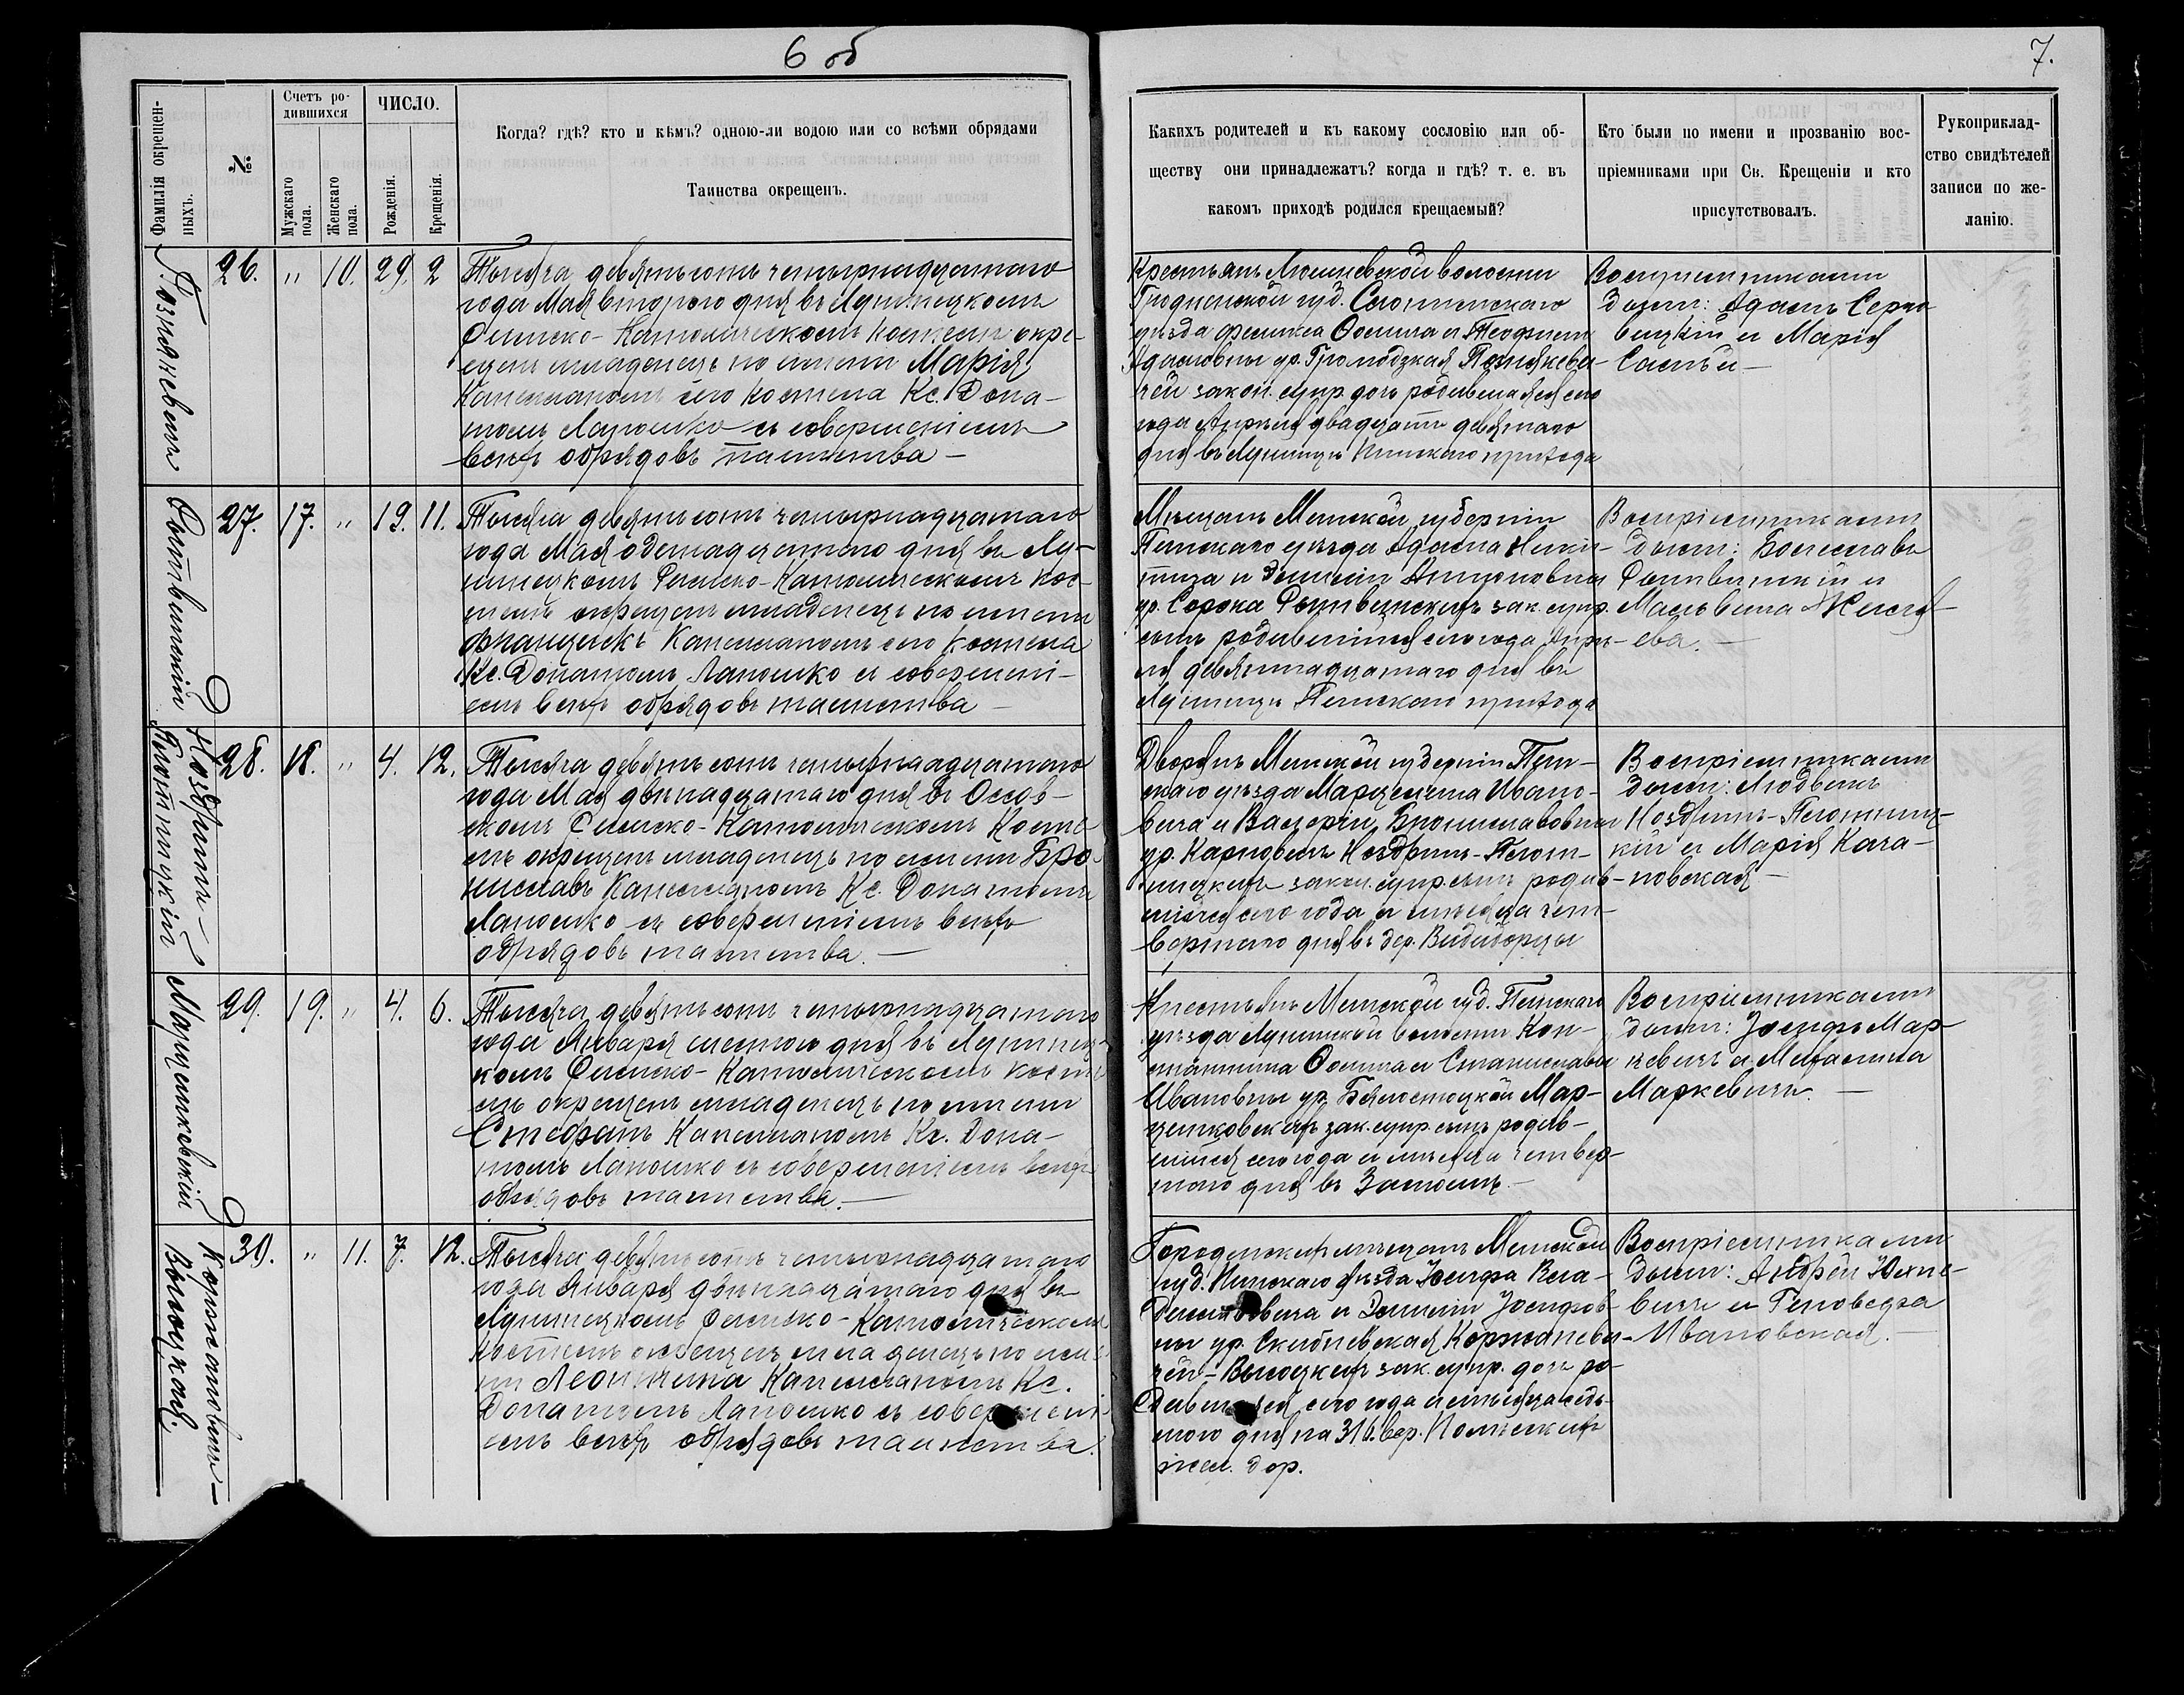 6 об
7.
Фамилія окрещен-
ныхъ.
№
Счетъ ро-
дившихся
Мужскаго
пола.
Женскаго
пола.
ЧИСЛО.
Рожденія.
Крещенія.
Когда? гдѣ? кто и кѣмъ? одною-ли водою или со всѣми обрядами
Таинства окрещенъ.
Каких родителей и къ какому сословію или об-
ществу они принадлежатъ? когда и гдѣ? т. е. въ
какомъ приходѣ родился крещаемый?
Кто были по имени и прозванію вос-
пріемниками при Св. Крещеніи и кто
присутствовалъ.
Рукоприклад-
ство свидѣтелей
записи по же-
ланію.
26. " 10. 29. 2
Тысяча девятьсотъ четырнадцатаго
года Мая второго дня въ Лунинецкомъ
Римско-Католическомъ костелѣ окре-
щенъ младенецъ по имени Марія
Капелланомъ сего костела Кс. Дона-
томъ Лапошко съ совершеніемъ
всѣхъ обрядовъ таинства —
Крестьянъ волости
Гродненской губ. Слонимскаго
уѣзда Феликса Осипа и Теофили
Адамовны ур. Громодзкая
закон. супр. дочь родившаяся сего
года Апрѣля двадцать девятаго
дня въ Лунинцѣ Пинскаго прихода
Воспріемниками
были: Адамъ
и Марія
27. 17. " 19. 11.
Тысяча девятьсотъ четырнадцатаго
года Мая одинадцатаго дня въ Лу-
нинецкомъ Римско-Католическомъ кос-
телѣ окрещенъ младенецъ по имени
Францишкъ Капелланомъ сего костела
Кс. Донатомъ Лапошко съ совершені-
емъ всѣхъ обрядовъ таинства —
Мѣщанъ Минской губерніи
Пинскаго уѣзда Адама
и Эмиліи Антоновны
ур. Сорока зак. супр.
сынъ родившійся сего года Апрѣ-
ля девятнадцатаго дня въ
Лунинцѣ Пинскаго прихода
Воспріемниками
были: Болеславъ
и
Мальвина
ева. —
Ноздринъ-
Плотницкій
28. 18. " 4. 12.
Тысяча девятьсотъ четырнадцатаго
года Мая двѣнадцатаго дня въ Оссов-
скомъ Римско-Католическомъ Косте-
лѣ окрещенъ младенецъ по имени Бро-
ниславъ Капелланомъ Кс. Донатомъ
Лапошко съ совершеніемъ всѣхъ
обрядовъ таинства. —
Дворянъ Минской губерніи Пин-
скаго уѣзда Марцелина Ивано-
вича и Валеріи Брониславовны
ур. Карповичъ Ноздринъ-Плот-
ницкихъ закон. супр. сынъ родив-
шійся сего года и мѣсяца чет-
вертаго дня въ дер. Видиборцы
Воспріемниками
были: Людвикъ
Ноздринъ-Плотниц-
кій и Марія Кача-
новская —
Марцинковскій
29. 19. " 4. 6.
Тысяча девятьсотъ четырнадцатаго
года Января шестого дня въ Лунинец-
комъ Римско-Католическомъ косте-
лѣ окрещенъ младенецъ по имени
Стефанъ Капелланомъ Кс. Дона-
томъ Лапошко съ совершеніемъ всѣхъ
обрядовъ таинства. —
Крестьянъ Минской губ. Пинскаго
уѣзда Лунинской волости Кон-
стантина Осипа и Станиславы
Ивановны ур. Бялостоцкой Мар-
цинковскихъ зак. супр. сынъ родив-
шійся сего года и мѣсяца четвер-
таго дня въ
Воспріемниками
были: Іосифъ Мар-
кевичъ и Михалина
Маркевичъ. —
Коржаневичъ-
Высоцкая.
30. " 11. 7. 12.
Тысяча девятьсотъ четырнадцатаго
года Января двѣнадцатаго дня въ
Лунинецкомъ Римско-Католическомъ
костелѣ окрещенъ младенецъ по име-
ни Леонтина Капелланомъ Кс.
Донатомъ Лапошко съ совершені-
емъ всѣхъ обрядовъ таинства.
Городенскихъ мѣщанъ Минской
губ. Пинскаго уѣзда Іосифа Вла-
диславовича и Эмиліи Іосифов-
ны ур. Скибневская Коржаневи-
чей-Высоцкихъ зак. супр. дочь ро-
дившаяся сего года и мѣсяца седь-
мого дня на 316. вер. Полѣскихъ
жел. дор.
Воспріемниками
были: Андрей Юхне-
вичъ и Геновефа
Ивановская. —